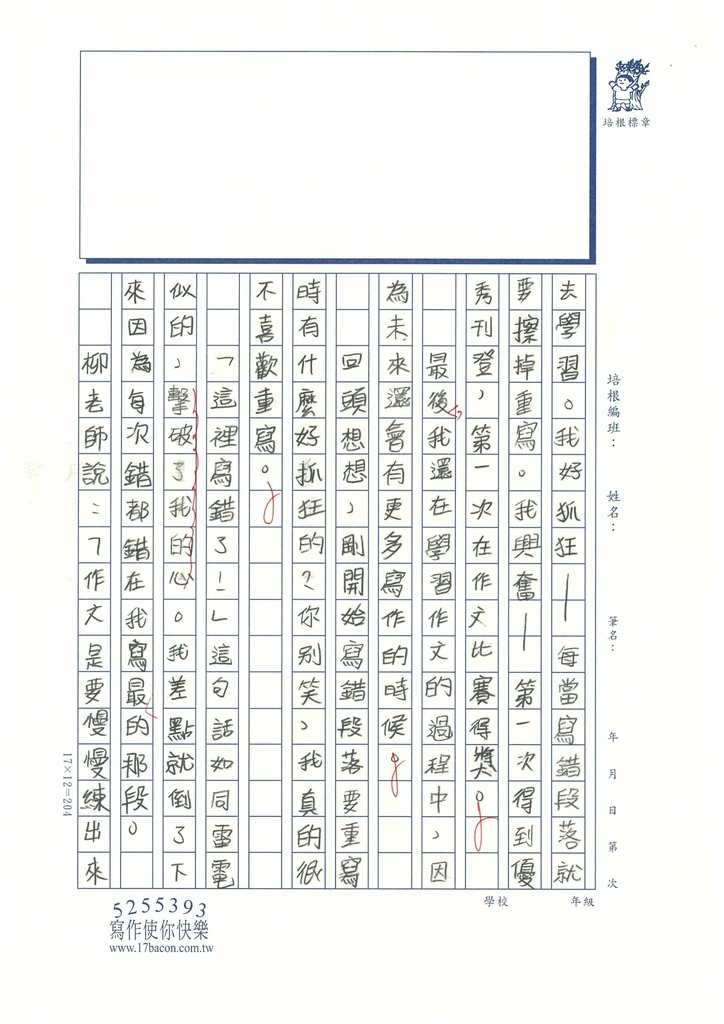 培根標章
培根編班：
姓名：
筆名：
年 月 日 第 次
學校
年級
去學習。我好狐狂——每當寫錯段落就
要擦掉重寫。我興奮——第一次得到優
秀刊登，第一次在作文比賽得獎。
最後我還在學習作文的過程中，因
為未來還會有更多寫作的時候。
回頭想想，剛開始寫錯段落要重寫
時有什麼好抓狂的？你別笑，我真的很
不喜歡重寫。
「這裡寫錯了！」這句話如同雷電
似的，擊破了我的心。我差點就倒了下
來因為每次錯都錯在我寫最的那段。
柳老師說：「作文是要慢慢練出來
17×12=204
5255393
寫作使你快樂
www.17bacon.com.tw